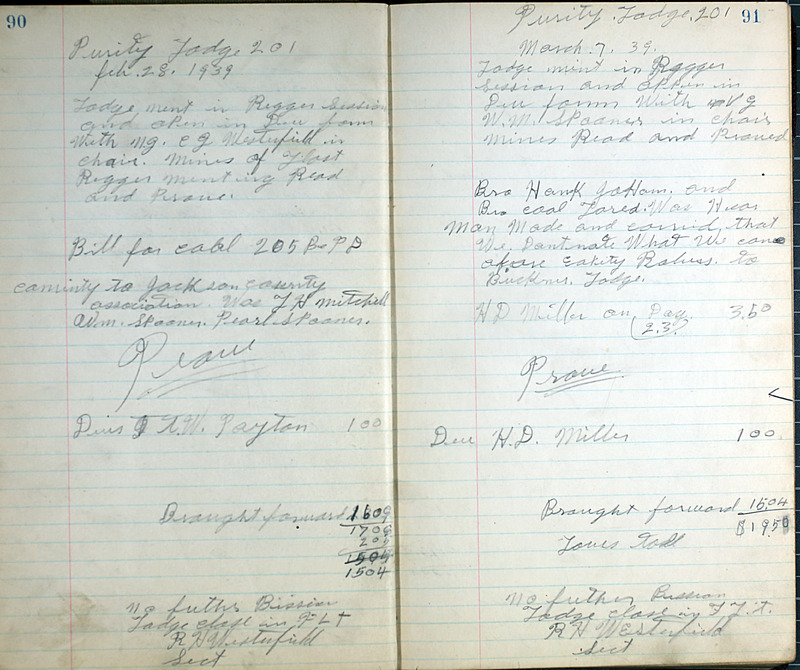 90
Purity Lodge 201
feb. 28. 1939
Lodge ment in Regger Session
and open in Deu form
With ng. C G Westerfield in
chair. Mines of Last
Regger menting Read
and Prove.
Bill for coal 205 B PD
comminty to Jackson county
association. Was J H mitchell
Wm. Spooner. Pearl Spooner.
Prove
Dius A.W. Payton 100
Brought forward 1609
1709
205
1505
1504
no futher Bission
Lodge close in F L t
R H Westerfield
Sect
Purity. Lodge. 201 91
March. 7. 39.
Lodge ment in Regger
Session and open in
Deu form With VG
W.M. Spooner in chair
Mines Read and Proved
Bro Hank JoHam. and
Bro coal Jored. Was Hear
Mon Made and carrid, that
We. Dantnate What We can
to
Buckner. Lodge.
HD Miller on Pay. 3.50
(2.3.)
Prove
Deu H.D. Miller 100
Brought forward 1504
$1950
no futher Bission
Lodge close in F. L. t.
R H WEsterfield
Sect